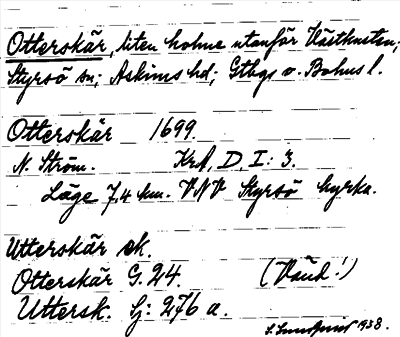 Otterskär, liten holme utanför Västkusten;
Styrsö sn; Askims hd; Gtbgs o. Bohus l.
Otterskär 1699.
N. Ström. Krf, D. I: 3.
Läge 7,4 km. VNV Styrsö kyrka.
Utterskär ek.
Otterskär G. 24. (Vänd!)
Uttersk. Lj: 276 a.
S. Lundqvist 1938.